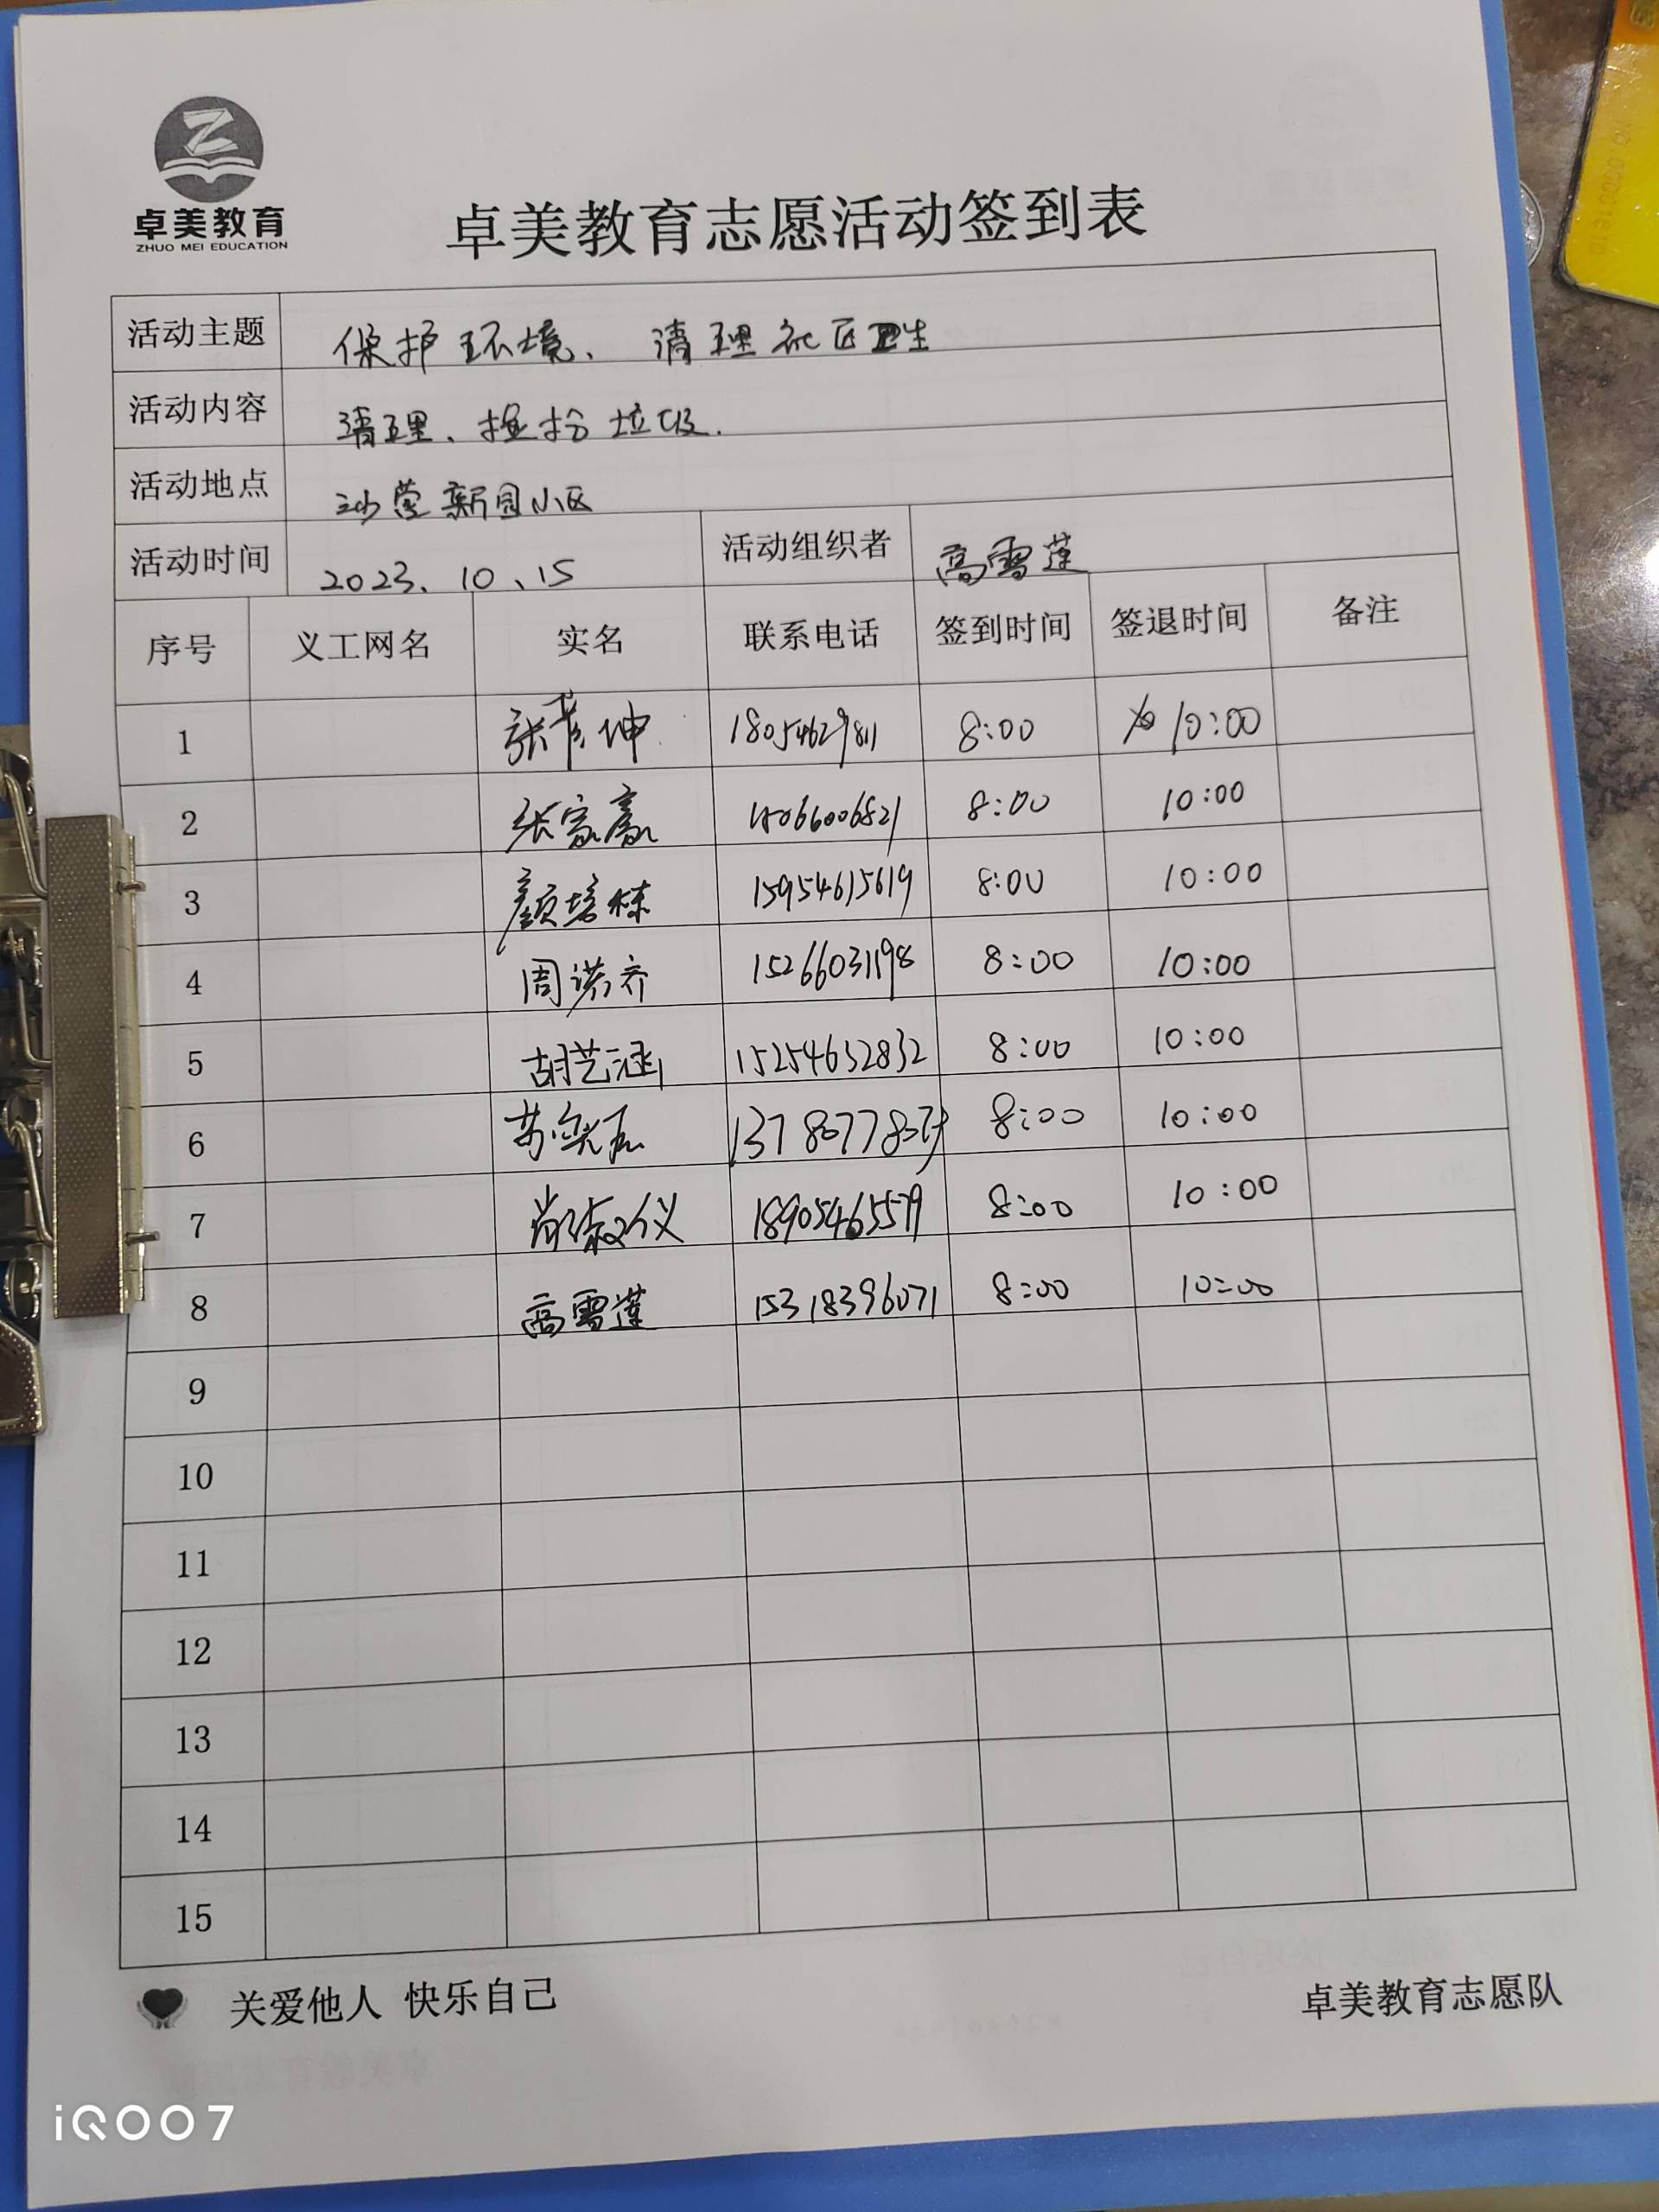 卓美教育
ZHUO MEI EDUCATION
卓美教育志愿活动签到表
活动主题 保护环境、清理社区卫生
活动内容 清理、捡拾垃圾.
活动地点 沙营新园小区
活动时间 2023、10、15 活动组织者 高雪莲
序号 义工网名 实名 联系电话 签到时间 签退时间 备注
1 张 坤 18054629811 8:00 10:00
2 张家赢 8:00 10:00
3 颜培栋 15954615619 8:00 10:00
4 周诺齐 15266031198 8:00 10:00
5 胡艺涵 15254632832 8:00 10:00
6 苏奕 8:00 10:00
7 尚淑仪 18905465579 8:00 10:00
8 高雪莲 15318396071 8:00 10:00
9
10
11
12
13
14
15
关爱他人 快乐自己 卓美教育志愿队
iQOO7